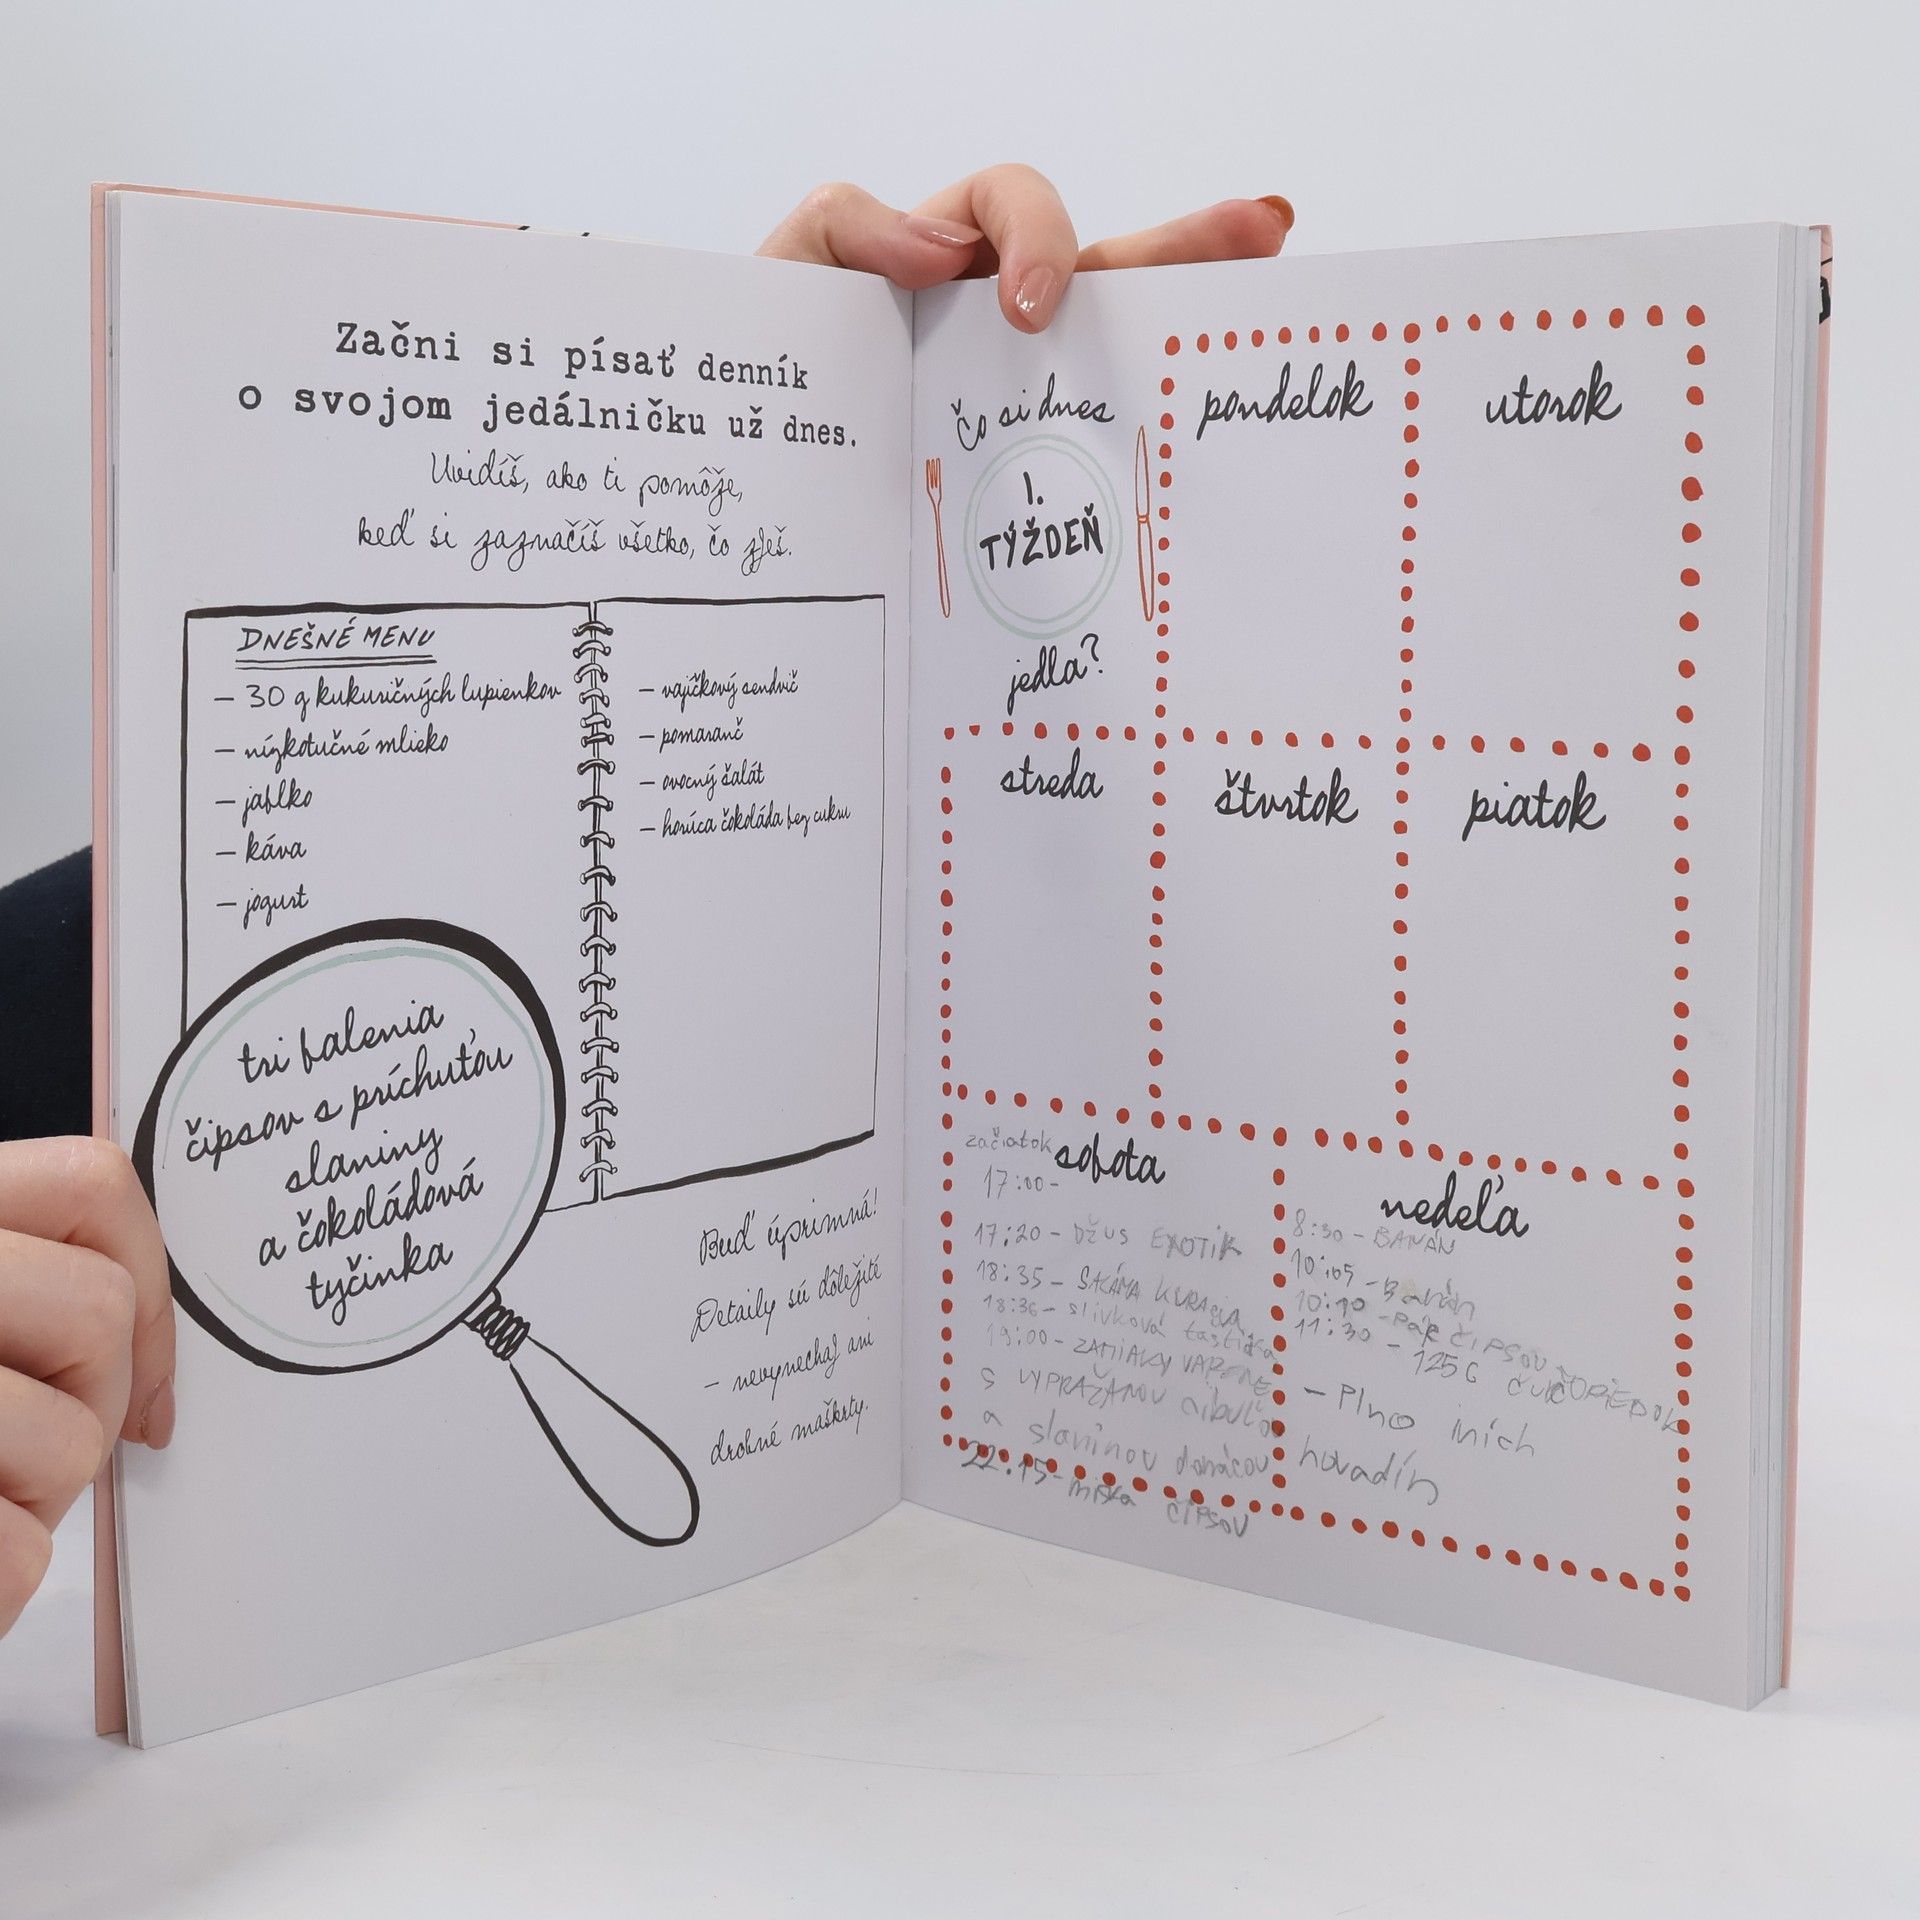 Začni si písať denník
o svojom jedálničku už dnes.
Uvidíš, ako ti pomôže,
keď si zaznačíš všetko, čo zješ.
DNEŠNÉ MENU
– 30 g kukuričných lupienkov
– nízkotučné mlieko
– jablko
– káva
– jogurt
– vajíčkový sendvič
– pomaranč
– ovocný šalát
– horúca čokoláda bez cukru
tri balenia
čipsov s príchuťou
slaniny
a čokoládová
tyčinka
Buď úprimná!
Detaily sú dôležité
– nevynechaj ani
drobné maškrty.
Čo si dnes
1.
TÝŽDEŇ
jedla?
pondelok
utorok
streda
štvrtok
piatok
sobota
začiatok
17:00-
17:20 - DŽUS EXOTIK
18:35 -
18:36 - slivková
19:00 - ZAMIAKY VARENÉ
S VYPRAŽANOU cibuľou
a slaninou domácou
22:15 - miska ČIPSOV
nedeľa
8:30 - BANÁN
10:05 - Banán
10:10 - pár ČIPSOV
11:30 - 125G
- Plno iních
hovadín